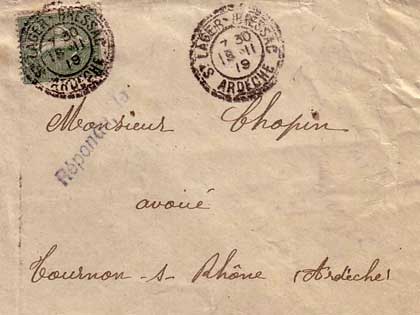 LABER-HAESSAC
7 30
18 -11
19
S ARDECHE
LABER-HAESSAC
7 30
18 -11
19
S ARDECHE
Répondu le
Monsieur Chopin
avoué
Tournon-s-Rhône (Ardèche)